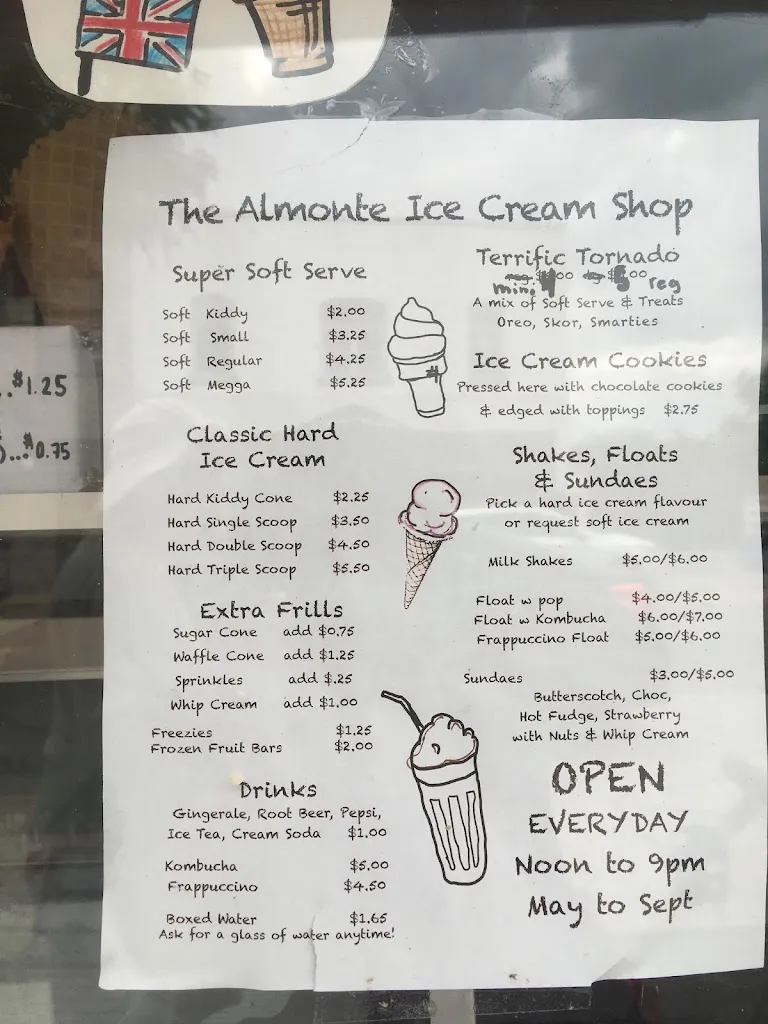 The Almonte Ice Cream Shop
Super Soft Serve
Soft Kiddy $2.00
Soft Small $3.25
Soft Regular $4.25
Soft Megga $5.25
Classic Hard
Ice Cream
Hard Kiddy Cone $2.25
Hard Single Scoop $3.50
Hard Double Scoop $4.50
Hard Triple Scoop $5.50
Extra Frills
Sugar Cone add $0.75
Waffle Cone add $1.25
Sprinkles add $.25
Whip Cream add $1.00
Freezies $1.25
Frozen Fruit Bars $2.00
Drinks
Gingerale, Root Beer, Pepsi,
Ice Tea, Cream Soda $1.00
Kombucha $5.00
Frappuccino $4.50
Boxed Water $1.65
Ask for a glass of water anytime!
Terrific Tornado
mini $4.00 $5.00 reg
A mix of Soft Serve & Treats
Oreo, Skor, Smarties
Ice Cream Cookies
Pressed here with chocolate cookies
& edged with toppings $2.75
Shakes, Floats
& Sundaes
Pick a hard ice cream flavour
or request soft ice cream
Milk Shakes $5.00/$6.00
Float w pop $4.00/$5.00
Float w Kombucha $6.00/$7.00
Frappuccino Float $5.00/$6.00
Sundaes $3.00/$5.00
Butterscotch, Choc,
Hot Fudge, Strawberry
with Nuts & Whip Cream
OPEN
EVERYDAY
Noon to 9pm
May to Sept
..$1.25
)...$0.75